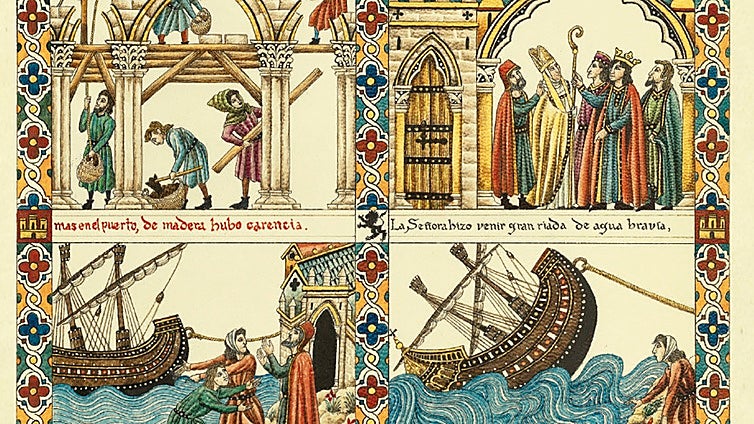 mas en el puerto, de madera hubo carencia.
La Señora hizo venir gran riada de agua bravía,